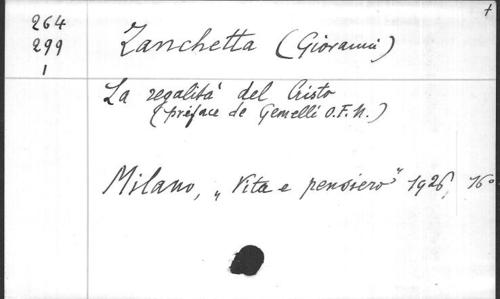 †
264
299
1
Zanchetta (Giovanni)
La regalità del Cristo
(préface de Gemelli O.F.M.)
Milano, „Vita e pensiero" 1926, 16°